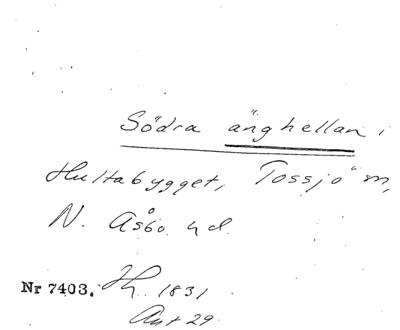 Södra änghellan i
Hultabygget, Tossjö m,
N. Åsbo hd.
Nr 7403. Hy. 1831
Akt 29.